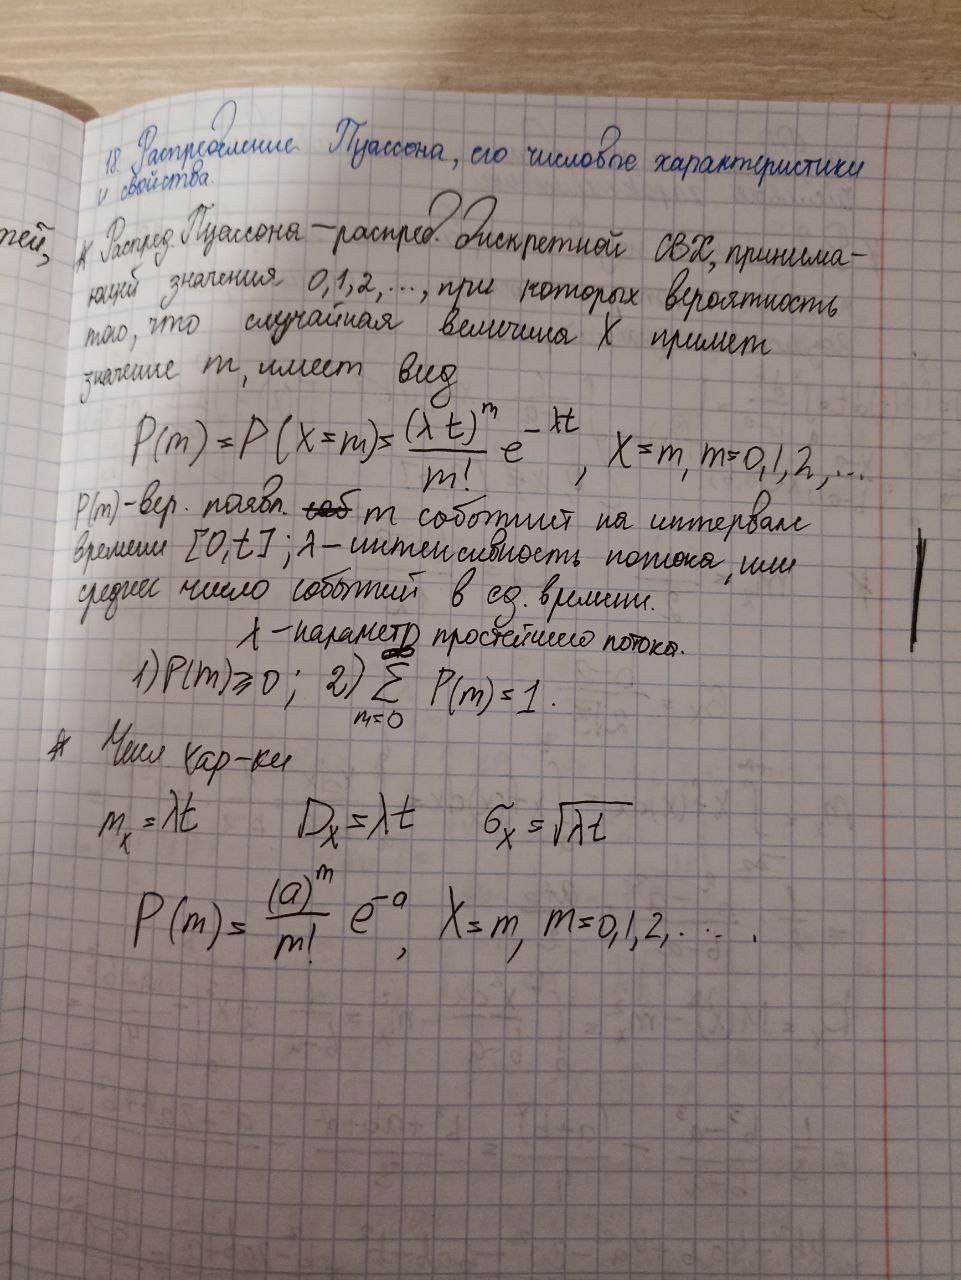 18. Распределение Пуассона, его числовые характеристики
и свойства.
тей,
* Распред. Пуассона – распред. дискретной СВХ, принима-
ющей значения 0,1,2,..., при которых вероятность
того, что случайная величина X примет
значение m, имеет вид
P(m) = P(X=m) = (λt)^m / m! e^{-λt}, X=m, m=0,1,2,...
P(m) – вер. появл. m событий на интервале
времени [0,t]; λ – интенсивность потока, или
среднее число событий в ед. времени.
λ – параметр простейшего потока.
1) P(m)≥0; 2) ∞ Σ m=0 P(m)=1.
* Числ хар-ки
m_x = λt D_x = λt σ_x = √λt
P(m) = (a)^m / m! e^{-a}, X=m, m=0,1,2,.... .